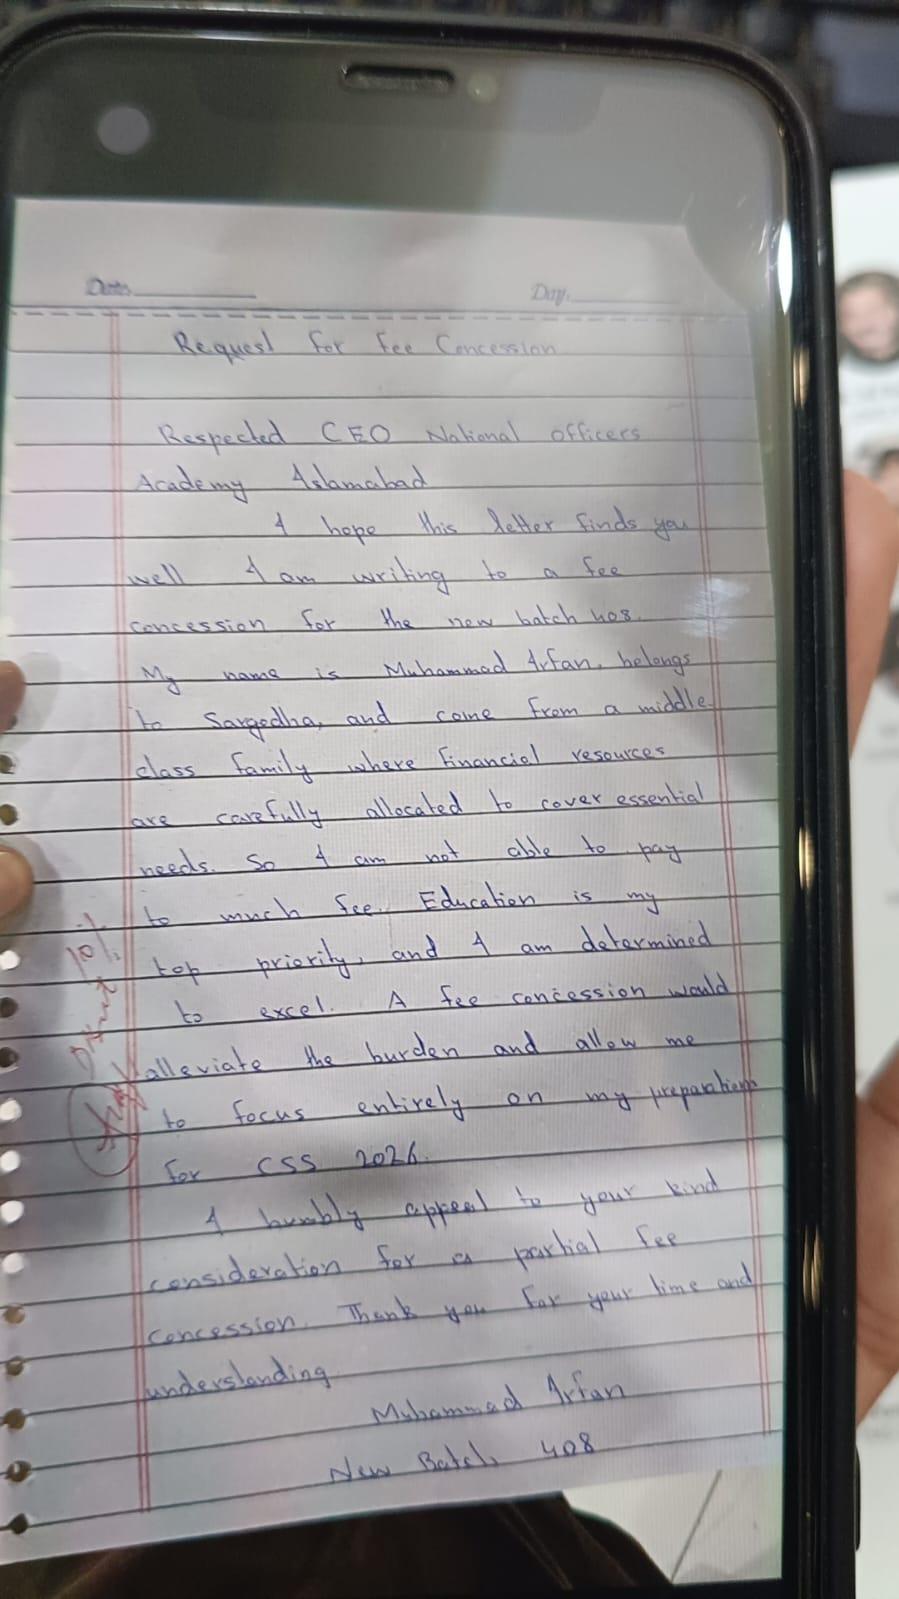 Date.
Day.
Request For Fee Concession
Respected CEO National Officers
Academy Islamabad
I hope this letter finds you
well I am writing to a fee
concession for the new batch 408.
My name is Muhammad Irfan, belongs
to Sargodha, and come from a middle
class family where financial resources
are carefully allocated to cover essential
needs. So I am not able to pay
to much fee. Education is my
top priority, and I am determined
to excel. A fee concession would
alleviate the burden and allow me
to focus entirely on my preparation
for CSS 2026.
I humbly appeal to your kind
consideration for a partial fee
concession. Thank you for your time and
understanding
Muhammad Irfan
New Batch 408
10%